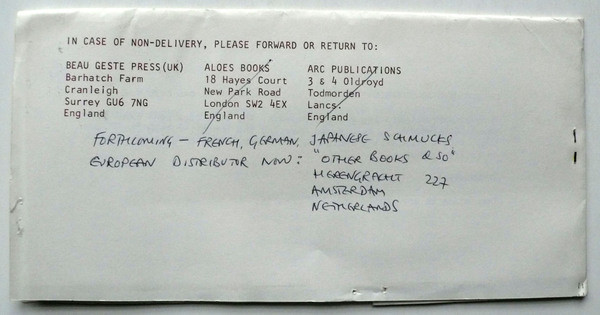 IN CASE OF NON-DELIVERY, PLEASE FORWARD OR RETURN TO:
BEAU GESTE PRESS(UK)
Barhatch Farm
Cranleigh
Surrey GU6 7NG
England
ALOES BOOKS
18 Hayes Court
New Park Road
London SW2 4EX
England
ARC PUBLICATIONS
3 & 4 Oldroyd
Todmorden
Lancs.
England
FORTHCOMING — FRENCH, GERMAN, JAPANESE SCHMUCKS
EUROPEAN DISTRIBUTOR NOW: "OTHER BOOKS & SO"
HERENGRACHT 227
AMSTERDAM
NETHERLANDS